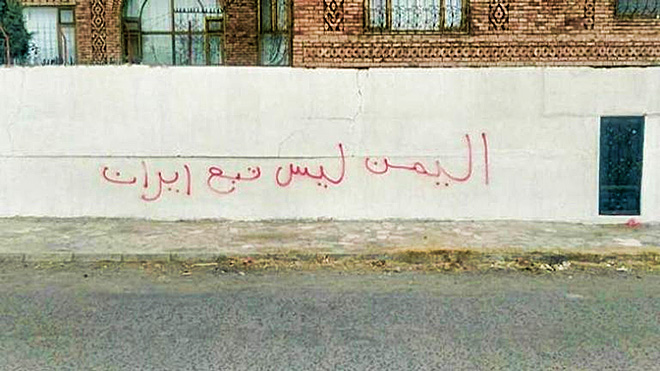 اليمن ليس تبع ايران